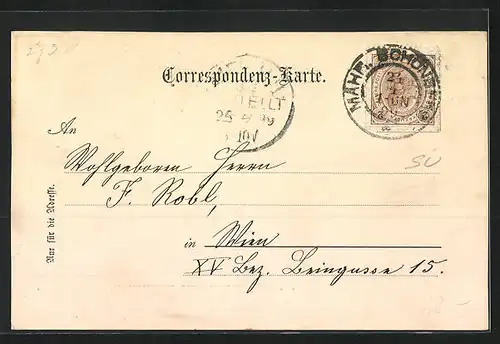 273
Correspondenz-Karte.
MÄHR. SCHÖNB
24
BESTELLT
25 4 99
An
Wohlgeboren Herrn
F. Robl,
in Wien
XV Bez. Beingasse 15.
Nur für die Adresse.
SU